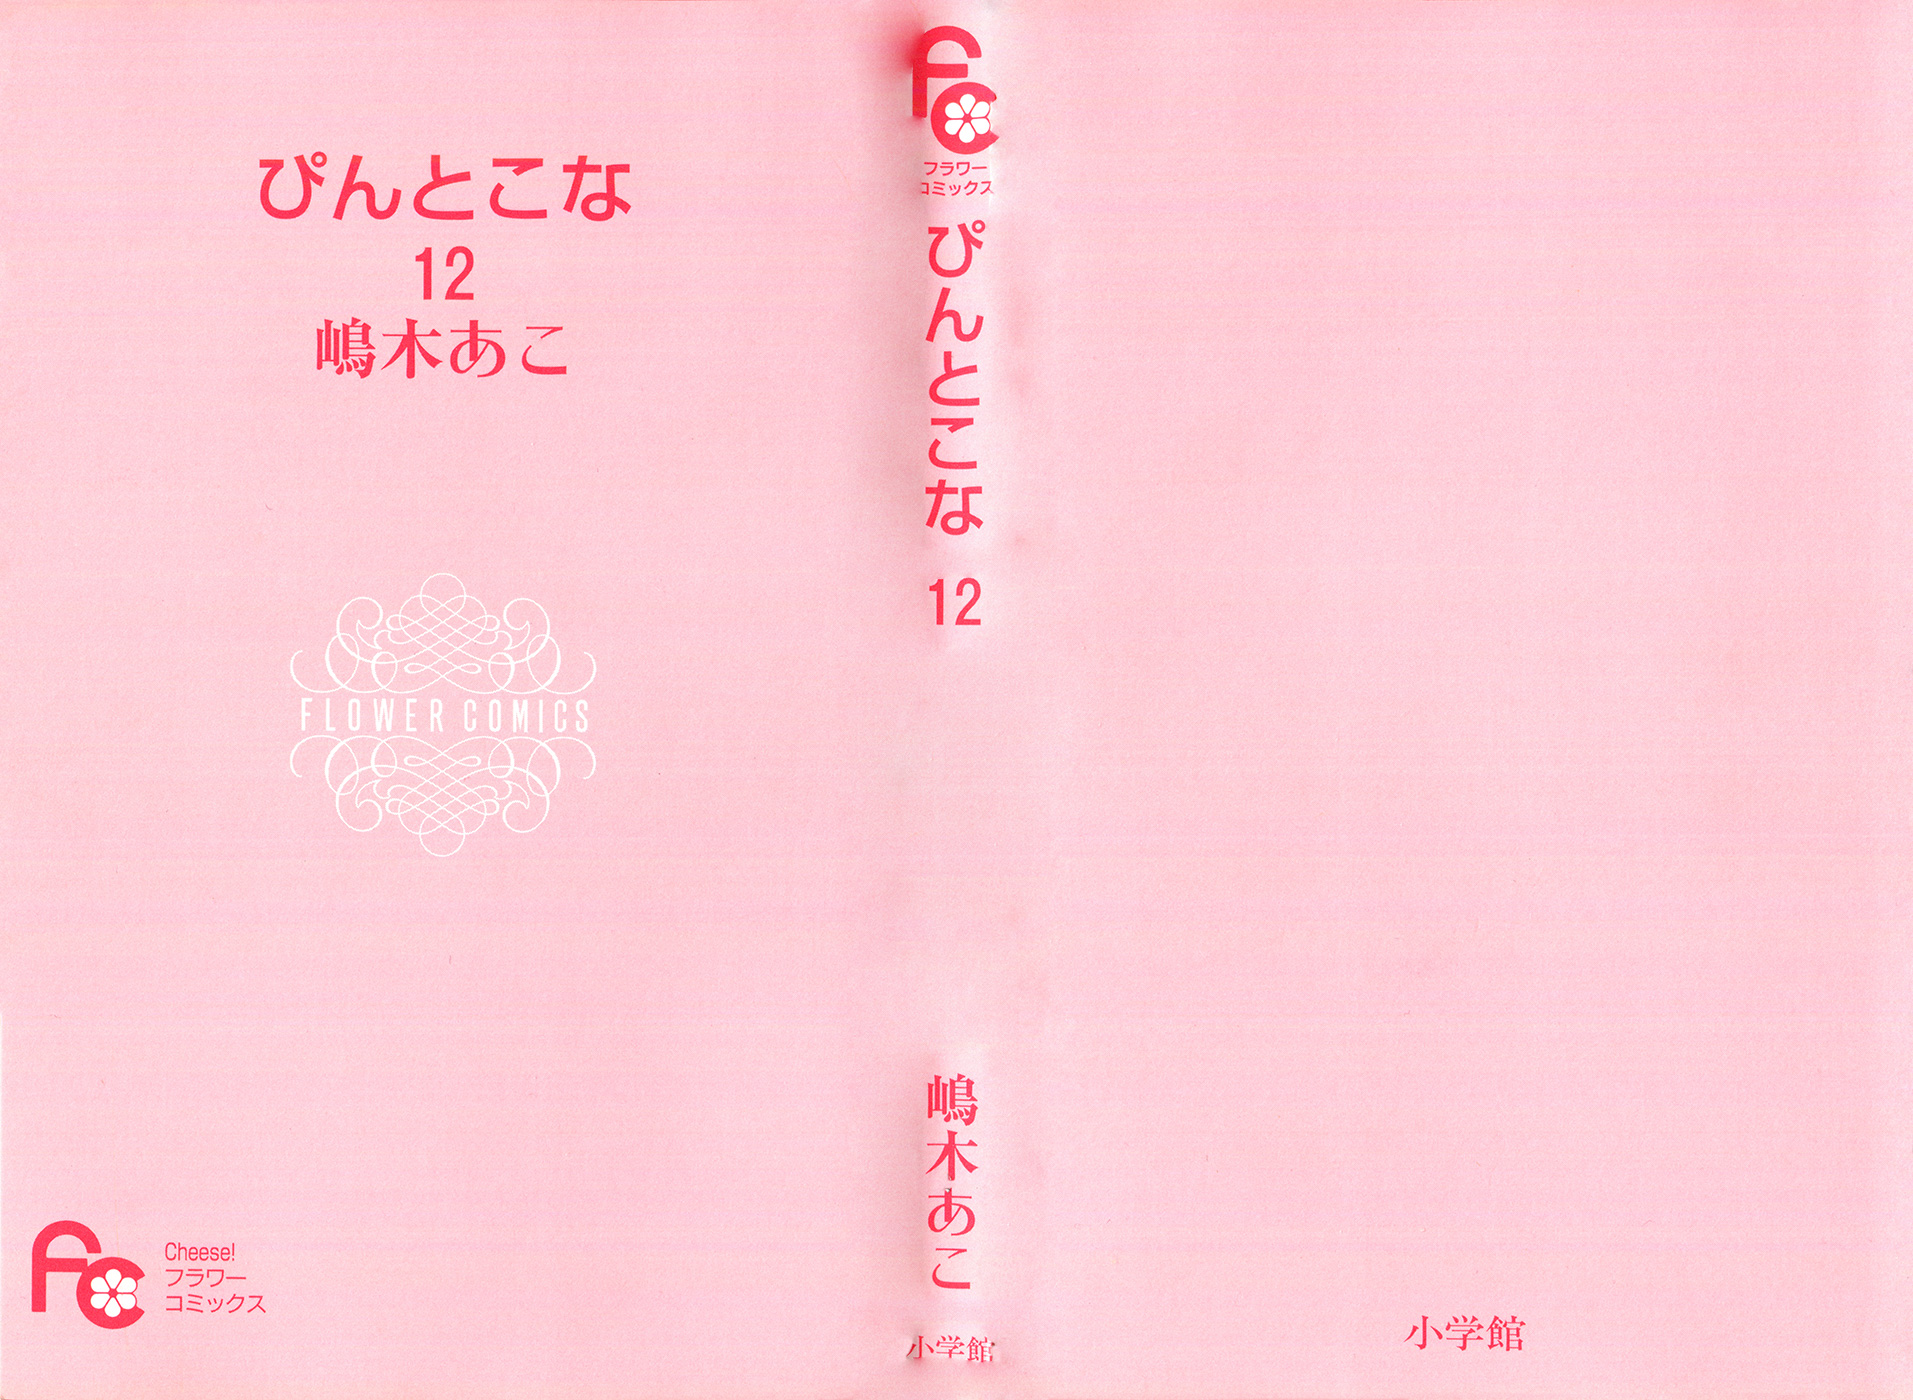 ぴんとこな
12
嶋木あこ
FLOWER COMICS
Cheese!
フラワー
コミックス
フラワー
コミックス
ぴんとこな 12
嶋木あこ
小学館
小学館